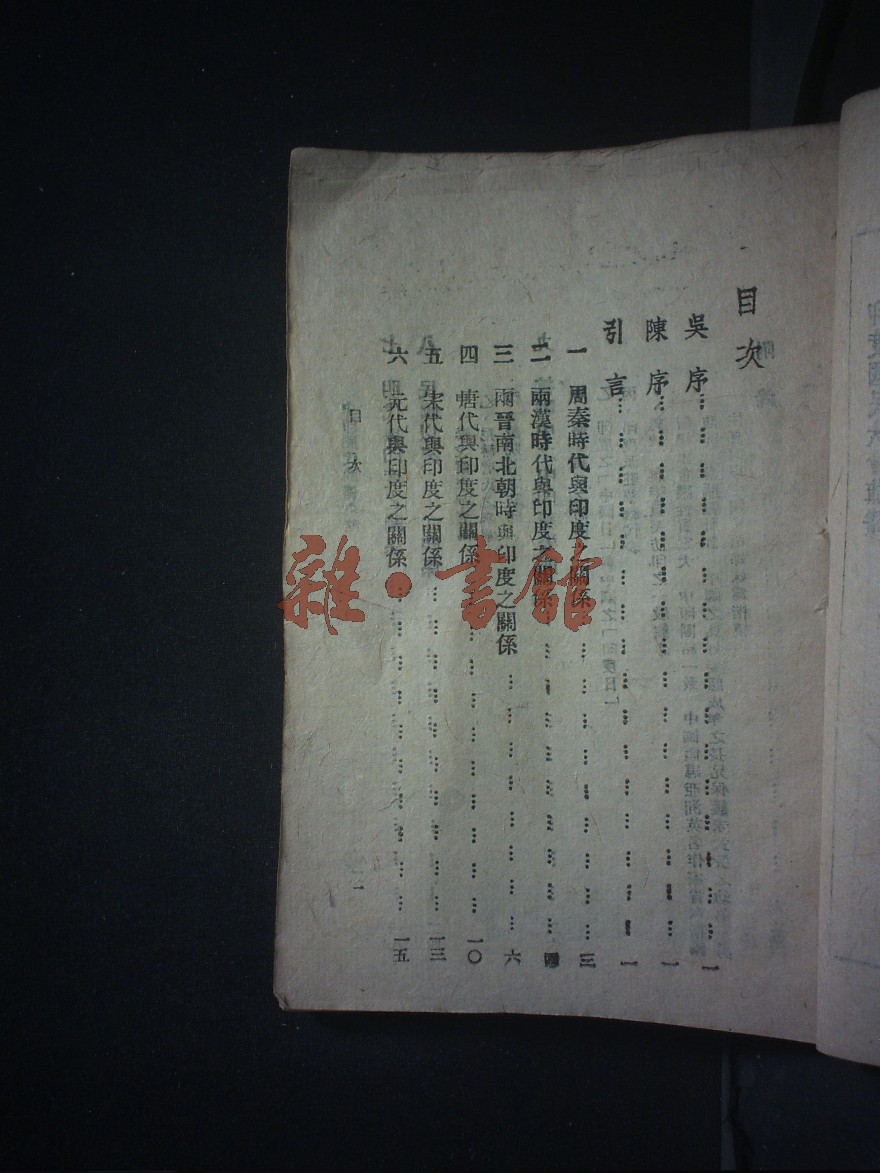 目次
吳序……………………一
陳序……………………一
引言……………………一
一 周秦時代與印度之關係……………………三
二 兩漢時代與印度之關係……………………四
三 兩晉南北朝時與印度之關係……………………六
四 唐代與印度之關係……………………一〇
五 宋代與印度之關係……………………一三
六 元代與印度之關係……………………一五
目次
一
雜·書館